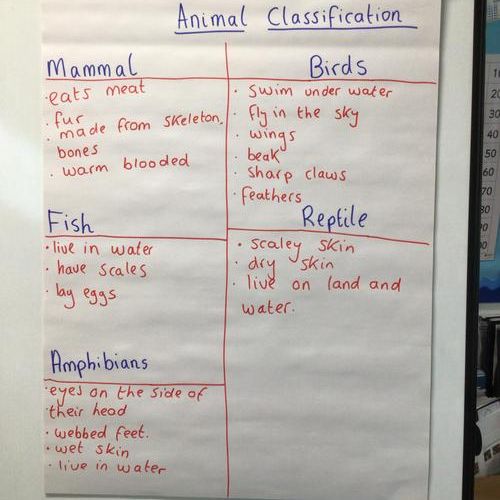 Animal Classification
Mammal
· eats meat
· fur
· made from skeleton,
bones
· warm blooded
Birds
· swim under water
· fly in the sky
· wings
· beak
· sharp claws
· feathers
Fish
· live in water
· have scales
· lay eggs
Reptile
· scaley skin
· dry skin
· live on land and
water.
Amphibians
· eyes on the side of
their head
· webbed feet.
· wet skin
· live in water
20
30
40
50
60
70
80
90